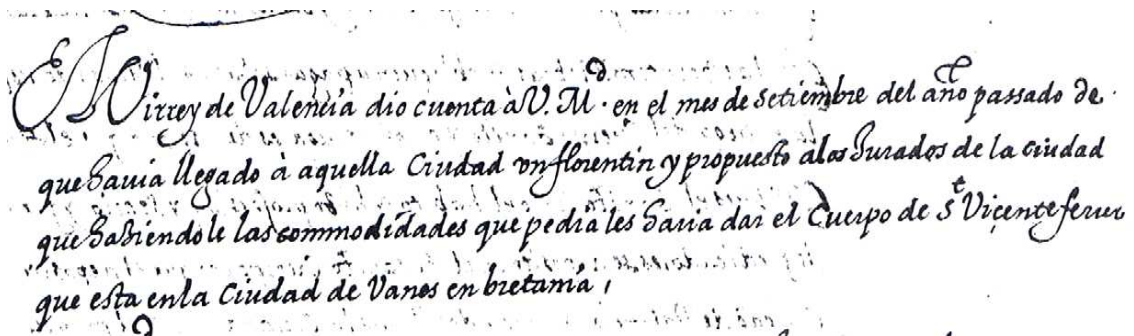 El Virrey de Valencia dio cuenta à V. M.d en el mes de setiembre del año passado de
que havia llegado à aquella Ciudad un florentin y propuesto à los Jurados de la ciudad
que haziendole las commodidades que pedia les haria dar el Cuerpo de St Vicente ferrer
que esta en la Ciudad de Vanes en bretania,